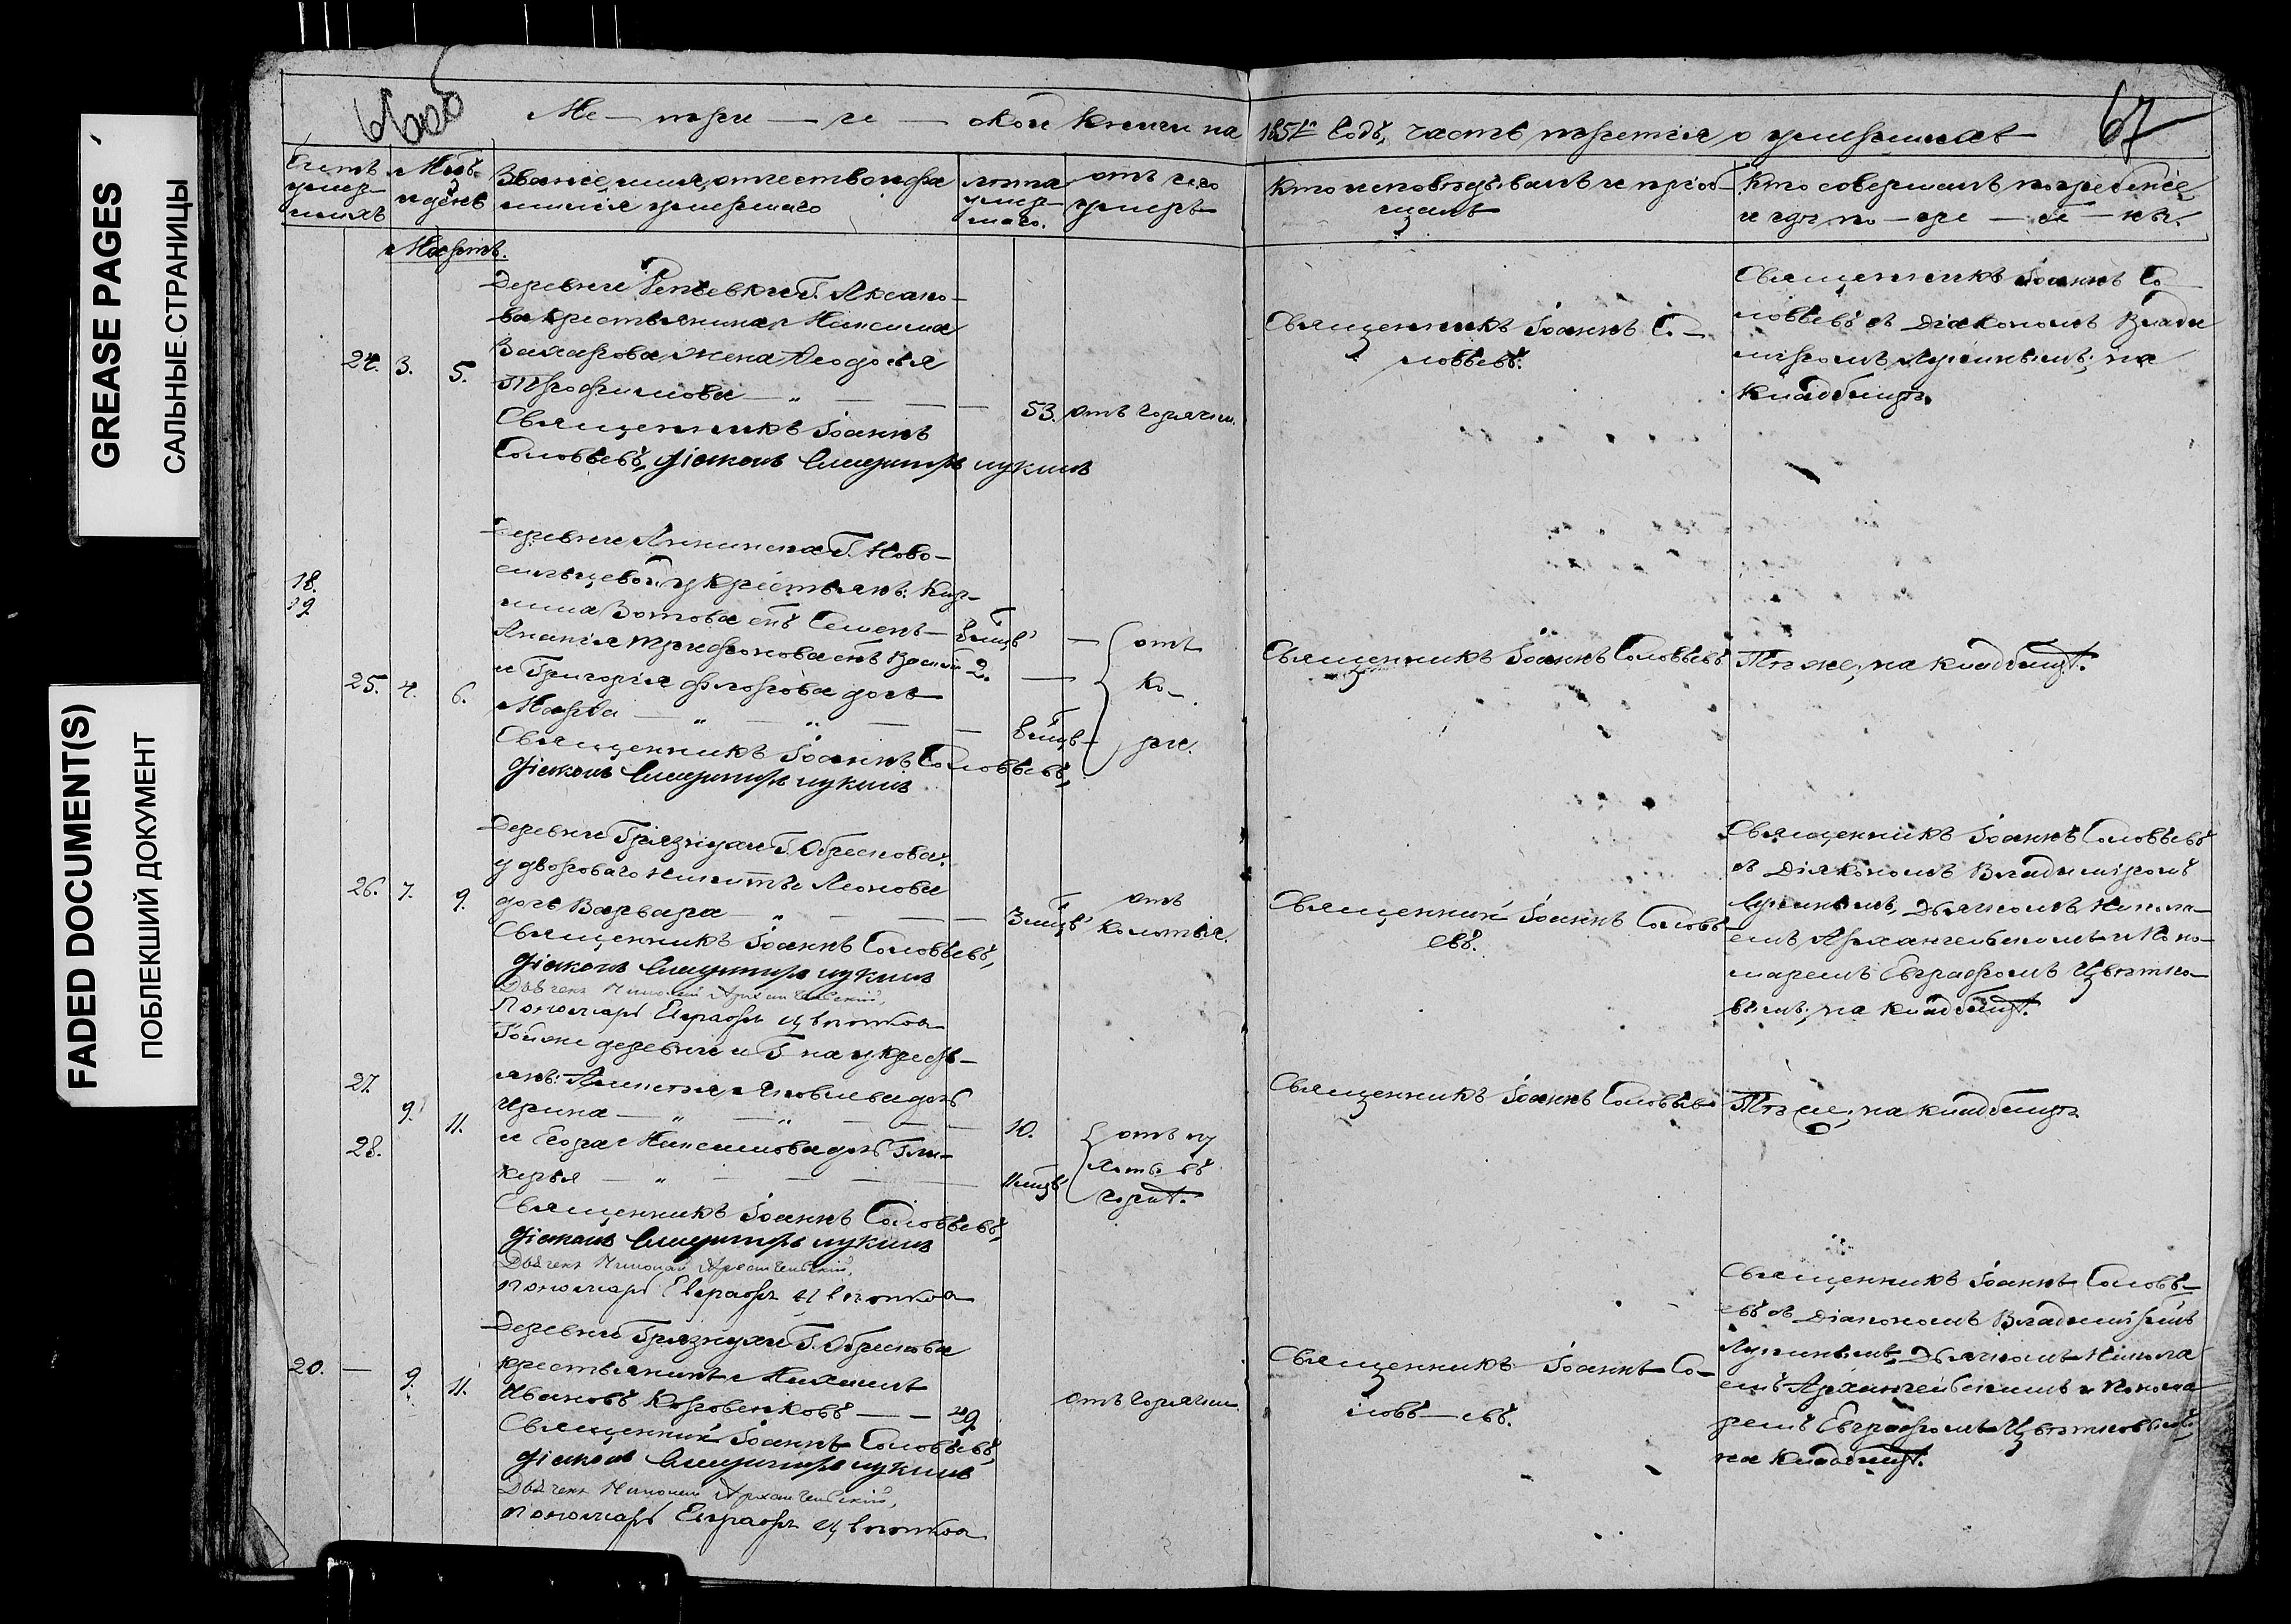 GREASE PAGES
САЛЬНЫЕ СТРАНИЦЫ
FADED DOCUMENT(S)
ПОБЛЕКШИЙ ДОКУМЕНТ
66 об
Ме — три — че — ской книги на 1851й Годъ, часть третiя о умершихъ
67
Счетъ умер-
шихъ
Мѣс.
и день
Званiе, имя, отчество и фа
милiя умершаго
лѣта
умер-
шаго.
отъ чего
умеръ
Кто исповѣдывалъ и прiоб-
щалъ
Кто совершалъ погребенiе
и гдѣ по — гре — бе — ны.
Мартъ.
24. 3. 5.
Деревни Репьевки Г. Аксако-
ва крестьянина Максима
Захарова жена Ѳеодосья
Трофимова — „ — — — 53. отъ горячки.
Священникъ Iоаннъ
Соловьевъ, Дiаконъ Владимiръ Лукинъ
Священникъ Iоаннъ Со-
ловьевъ.
Священникъ Iоаннъ Со
ловьевъ съ Дiакономъ Влади
мiромъ Лукинымъ; на
кладбищѣ.
18.
19.
25. 4. 6.
Деревни Г. Ново-
сильцевой у крестьянъ:
Зотова снъ Семенъ — 8 мцв
Ананiя Трифонова снъ Василiй 2.
и Григорiя Флорова дочь
Марфа — „ — „ — — 8 мцв
отъ
ко-
ри.
Священникъ Iоаннъ Соловьевъ,
Дiаконъ Владимiръ Лукинъ
Священникъ Iоаннъ Соловьевъ
Тѣ же; на кладбищѣ.
26. 7. 9.
Деревни Грязнухи Г. Обрескова
у двороваго Никиты Леонова
дочь Варвара — „ — — — 3 мцв
отъ
колотья.
Священникъ Iоаннъ Соловьевъ,
Дiаконъ Владимiръ Лукинъ
Дьячекъ Николай Архангельскiй,
Пономарь Евграфъ Цвѣтков
Священникъ Iоаннъ Соловь-
евъ.
Священникъ Iоаннъ Соловьевъ
съ Дiакономъ Владимiромъ
Лукинымъ, Дьячкомъ Никола-
емъ Архангельскимъ и Поно-
маремъ Евграфомъ Цвѣтко-
вымъ; на кладбищѣ.
27.
Той же деревни и Г на у крестъ-
янъ: Алексѣя Яковлева дочь
9. 11.
Ирина — „ — „ — — 10.
28.
и Егора Максимова дочь Гли-
керья — „ — — — 11 мцв
Священникъ Iоаннъ Соловьевъ,
Дiаконъ Владимiръ Лукинъ
Дьячекъ Николай Архангельскiй,
Пономарь Евграфъ Цвѣтков
Священникъ Iоаннъ Соловьевъ
Тѣ же; на кладбищѣ
20. — 9. 11.
Деревни Грязнухи Г. Обрескова
крестьянинъ Михаилъ
Ивановъ Коровенковъ — — 49.
отъ горячки.
Священникъ Iоаннъ Соловьевъ,
Дiаконъ Владимiръ Лукинъ
Дьячекъ Николай Архангельскiй,
Пономарь Евграфъ Цвѣтков
Священникъ Iоаннъ Со-
ловь — евъ.
Священникъ Iоаннъ Соловь-
евъ съ Дiакономъ Владимiромъ
Лукинымъ, Дьячкомъ Никола
емъ Архангельскимъ и Понома
ремъ Евграфомъ Цвѣтковымъ;
на кладбищѣ.